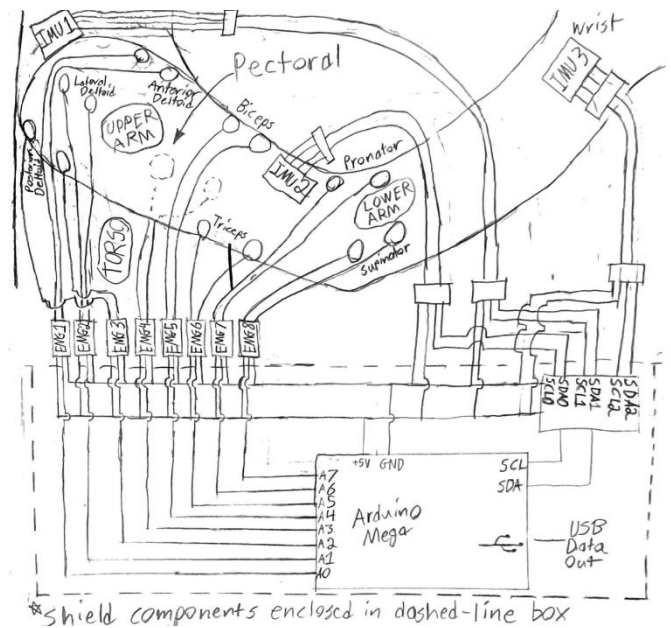 IMU1
Wrist
IMU3
Pectoral
Lateral
Deltoid
Anterior
Deltoid
Biceps
UPPER
ARM
Posterior
Deltoid
IMU2
Pronator
LOWER
ARM
Triceps
Supinator
TORSO
ENG1
ENG2
ENG3
ENG4
ENG5
ENG6
ENG7
ENG8
SCL0
SDA0
SCL1
SDA1
SCL2
SDA2
+5V GND
SCL
SDA
A7
A6
A5
A4
A3
A2
A1
A0
Arduino
Mega
USB
Data
Out
*Shield components enclosed in dashed-line box